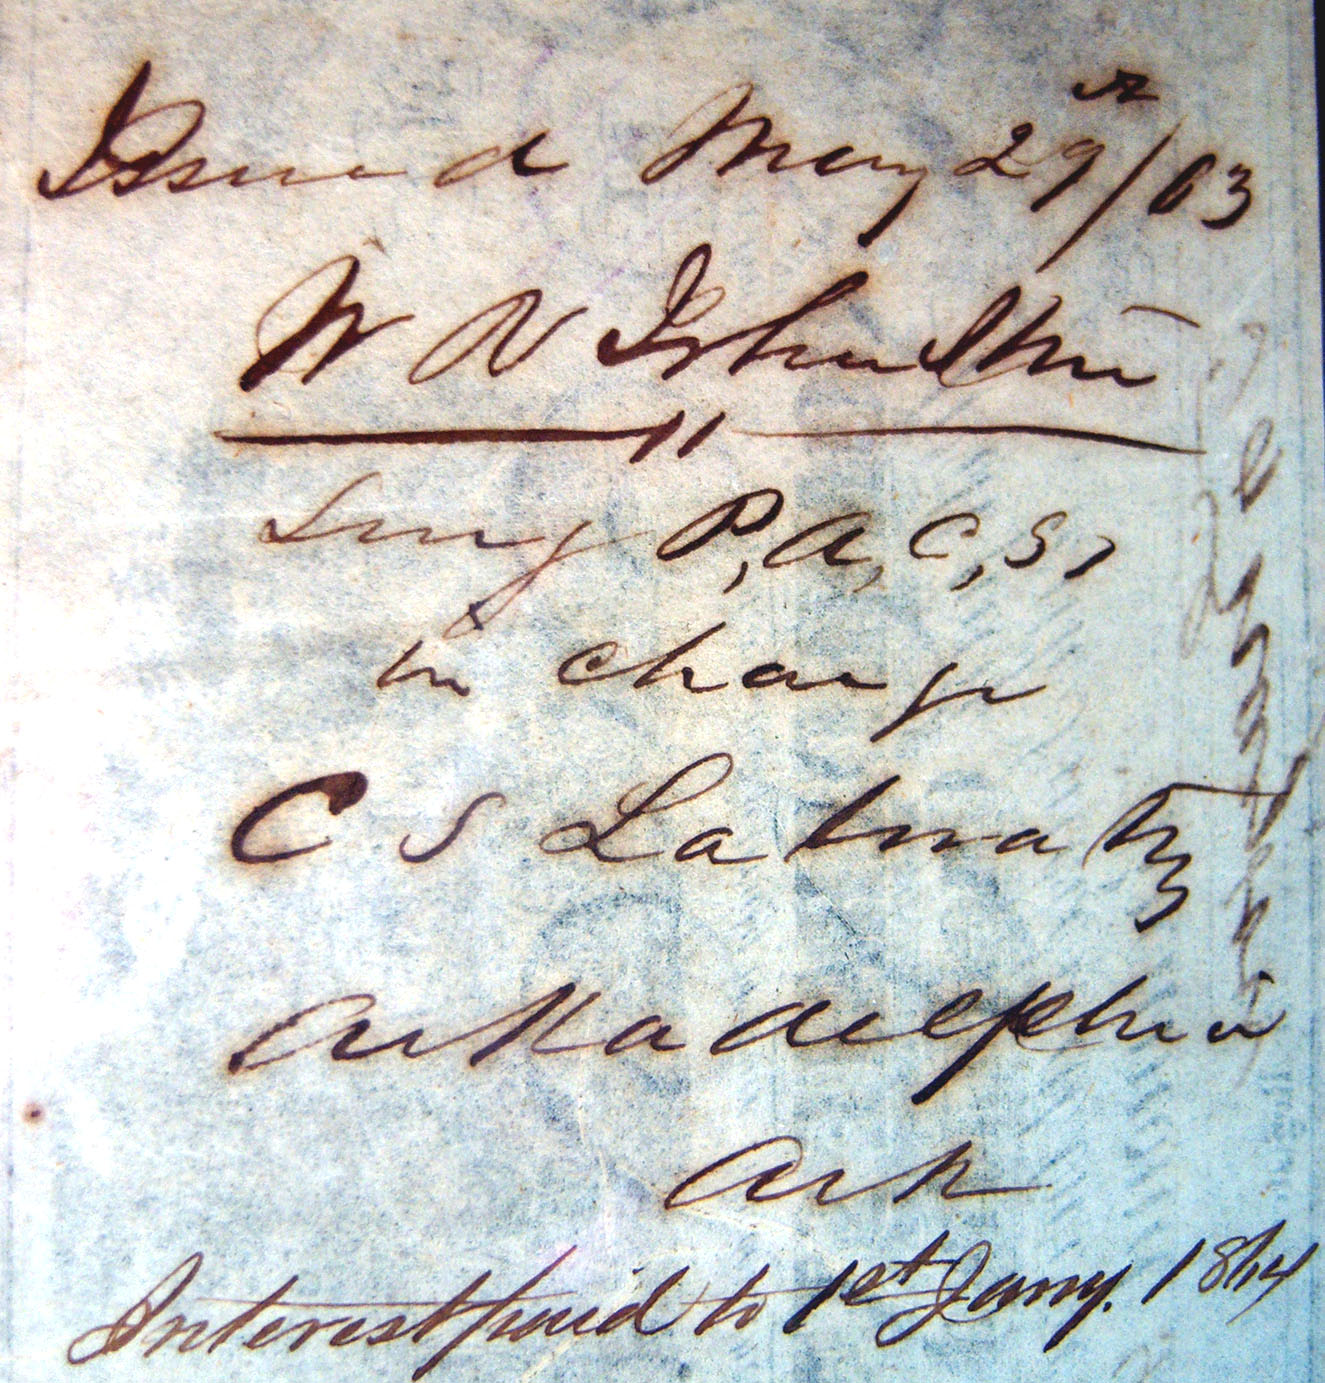 Issued May 29th/63
W N
Surg P, A, C, S,
in charge
C S Labratry
Arkadelphia
Ark
Interest paid to 1st Jany. 1864